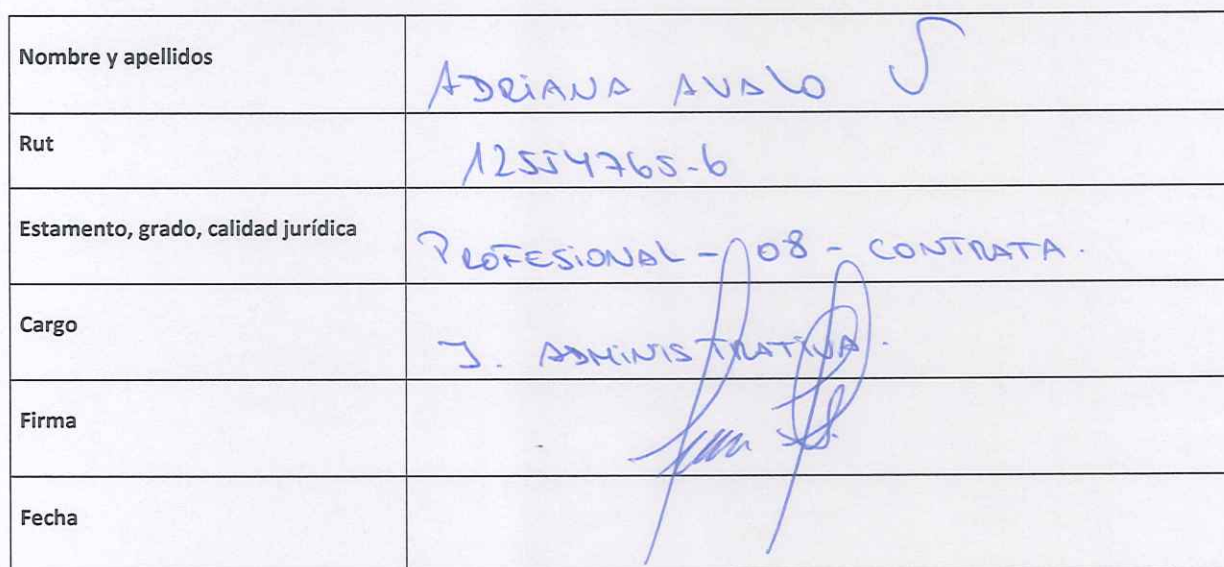 Nombre y apellidos
ADRIANA AVALO S
Rut
12554765-6
Estamento, grado, calidad jurídica
PROFESIONAL - 08 - CONTRATA.
Cargo
J. ADMINISTRATIVA.
Firma
Fecha